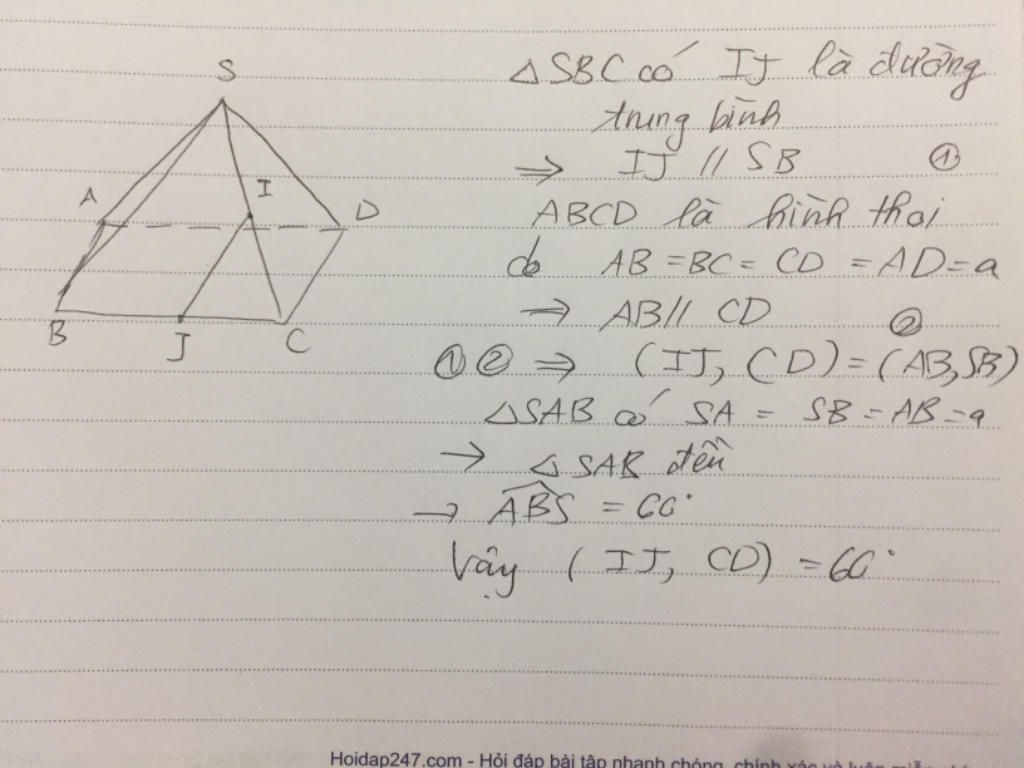 S
A
I
D
B
J
C
△SBC có IJ là đường
trung bình
⇒ IJ // SB ①
ABCD là hình thoi
do AB = BC = CD = AD = a
⇒ AB // CD ②
① ② ⇒ (IJ, CD) = (AB, SB)
△SAB có SA = SB = AB = a
→ △ SAB đều
→ \widehat{ABS} = 60°
Vậy (IJ, CD) = 60°
Hoidap247.com - Hỏi đáp bài tập nhanh chóng, chính xác và luôn miễn phí